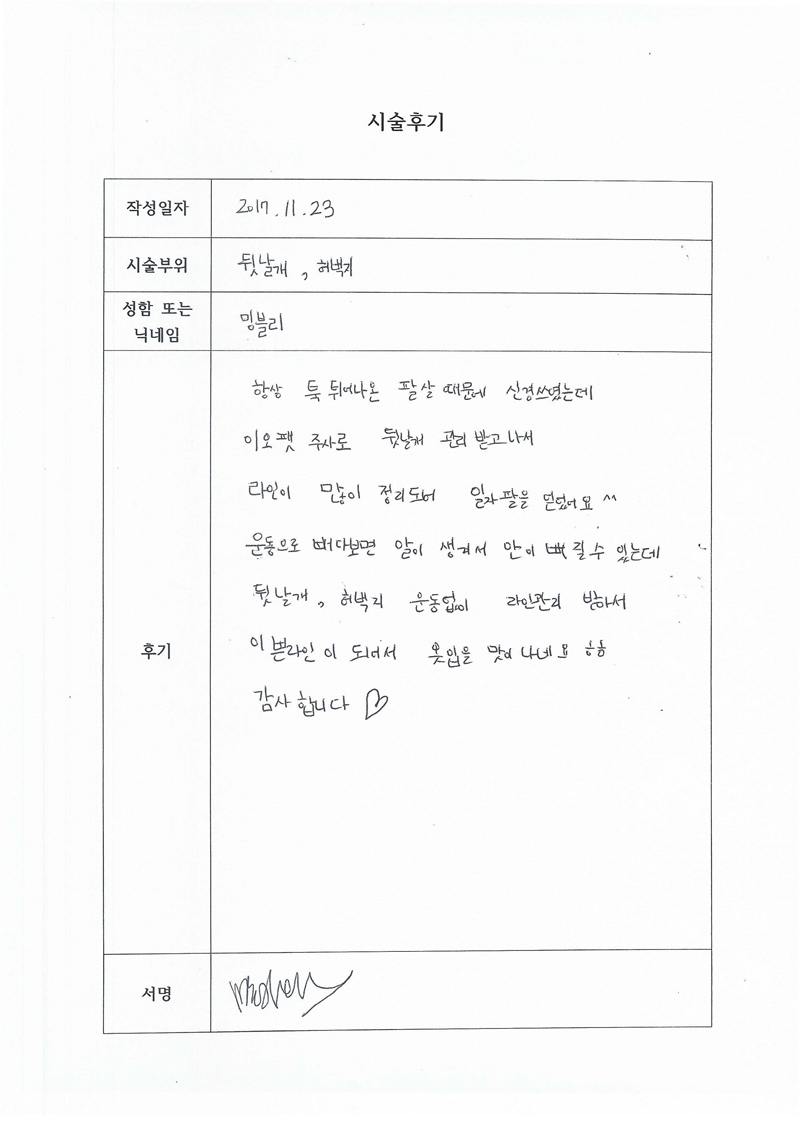 시술후기
작성일자 2017.11.23
시술부위 뒷날개, 허벅지
성함 또는
닉네임 밍블리
후기
항상 툭 튀어나온 팔살 때문에 신경쓰였는데
이오팻 주사로 뒷날개 관리 받고나서
라인이 많이 정리되어 일자팔을 얻었어요 ^^
운동으로 빼다보면 알이 생겨서 안이뻐질수 있는데
뒷날개, 허벅지 운동없이 라인관리 받아서
이쁜라인이 되어서 옷입을 맛이 나네요 ㅎㅎ
감사합니다 ♡
서명